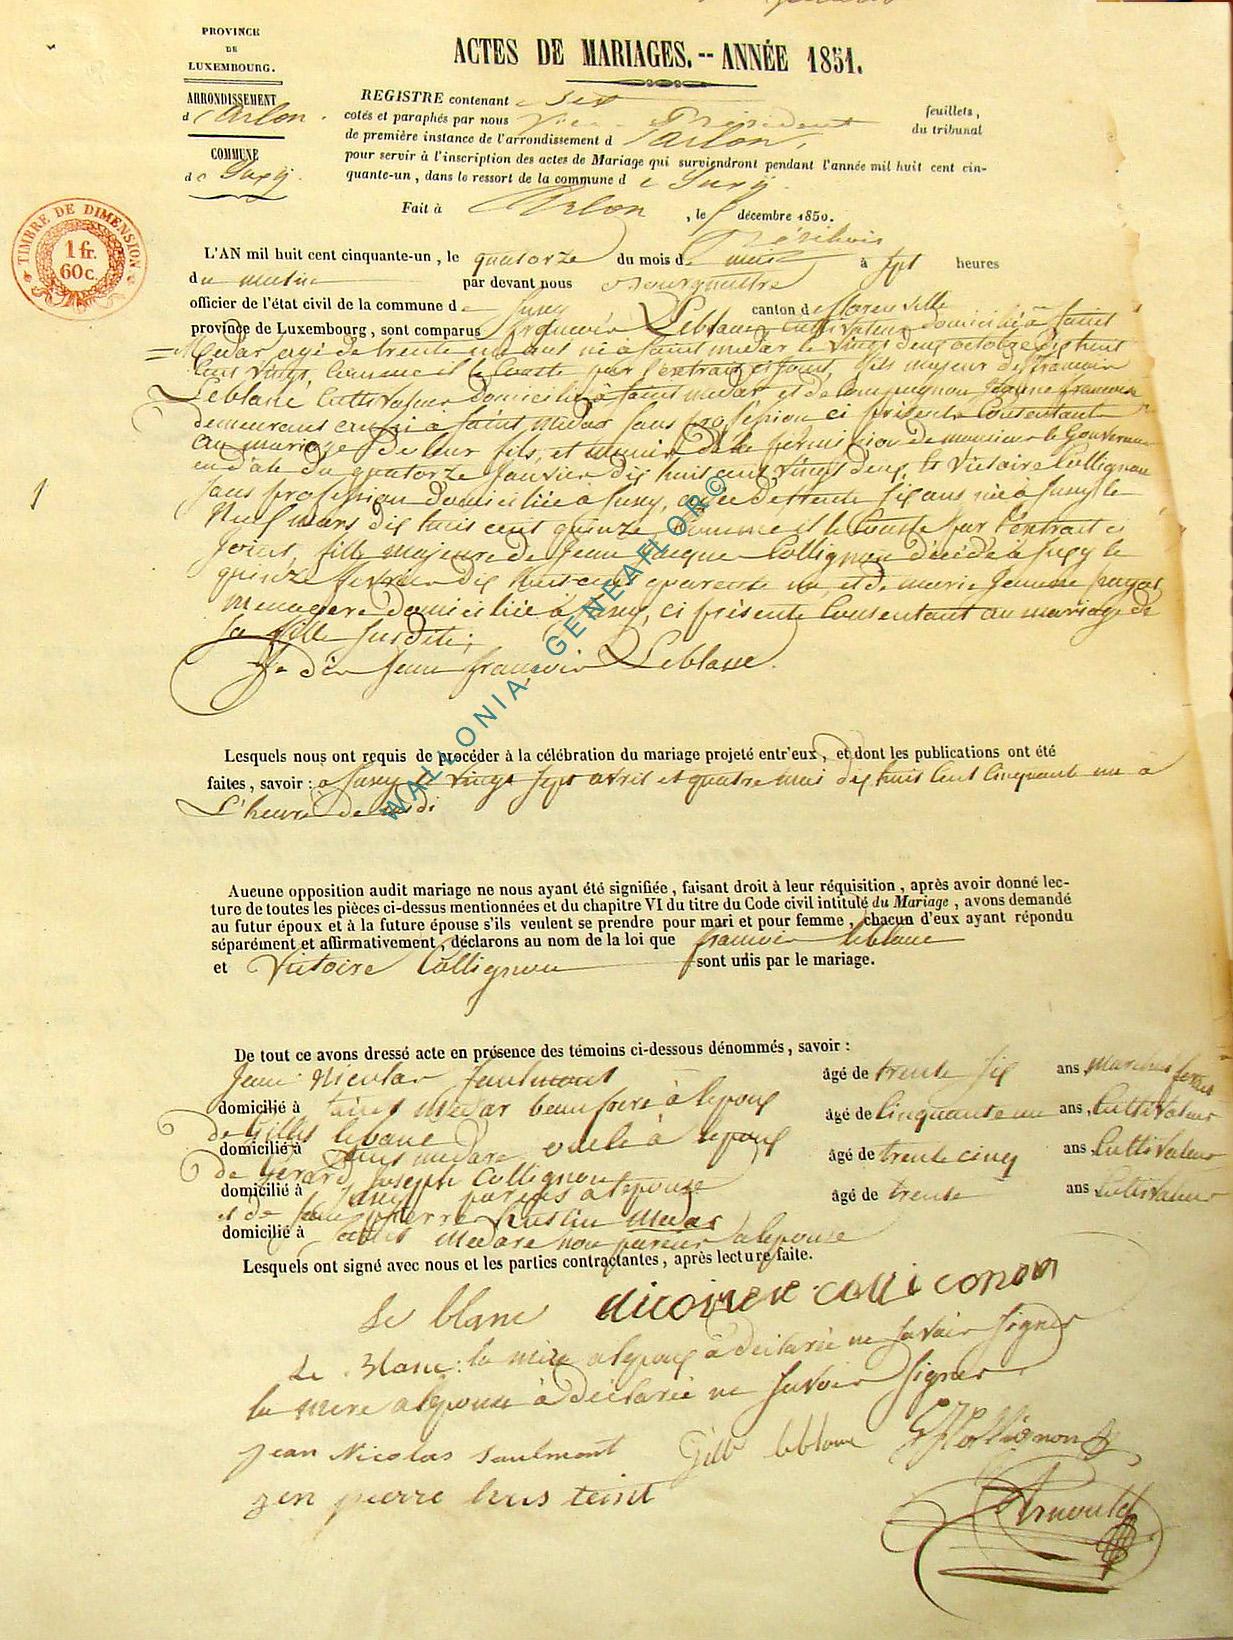 PROVINCE
DE
LUXEMBOURG.
ARRONDISSEMENT
d'Arlon.
COMMUNE
de Suxy.
ACTES DE MARIAGES. -- ANNÉE 1851.
REGISTRE contenant six feuillets,
cotés et paraphés par nous Vice-Président du tribunal
de première instance de l'arrondissement d'arlon,
pour servir à l'inscription des actes de Mariage qui surviendront pendant l'année mil huit cent cin-
quante-un, dans le ressort de la commune de Suxy.
Fait à Arlon, le décembre 1850.
TIMBRE DE DIMENSION
1 fr.
60 c.
L'AN mil huit cent cinquante-un, le quatorze du mois de mai à sept heures
du matin par devant nous Bourgmestre
officier de l'état civil de la commune de Suxy canton de florenville
province de Luxembourg, sont comparus françois Leblanc Cultivateur domicilié à saint
Medar agé de trente ans né à saint medar le vingt deux octobre dix huit
cent vingt, comme il le Conste par l'extrait ci joint, fils majeur de françois
Leblanc Cultivateur domicilié à saint medar et de Jeanne françoise
demeurant à saint medar sans profession ci présents Consentants
au mariage de leur fils, et muni de la permission de monsieur le Gouverneur
en date du quatorze Janvier dix huit cent vingt deux, et Victoire Collignon
sans profession domiciliée à Suxy, agée de trente six ans née à Suxy le
neuf mars dix huit cent quinze Comme il le Conste par l'extrait ci
Joint, fille majeure de Jean Jacque Collignon décédé à Suxy le
quinze fevrier dix huit cent quarante un, et de marie Jeanne
menagere domiciliée à Suxy, ci présente Consentant au mariage de
sa fille susdite;
Je dis Jean françois Leblanc.
1
Lesquels nous ont requis de procéder à la célébration du mariage projeté entr'eux, et dont les publications ont été
faites, savoir: à Suxy le vingt sept avril et quatre mai dix huit Cent Cinquante un à
L'heure de midi
Aucune opposition audit mariage ne nous ayant été signifiée, faisant droit à leur réquisition, après avoir donné lec-
ture de toutes les pièces ci-dessus mentionnées et du chapitre VI du titre du Code civil intitulé du Mariage, avons demandé
au futur époux et à la future épouse s'ils veulent se prendre pour mari et pour femme, chacun d'eux ayant répondu
séparément et affirmativement, déclarons au nom de la loi que françois leblanc
et Victoire Collignon sont unis par le mariage.
De tout ce avons dressé acte en présence des témoins ci-dessous dénommés, savoir:
Jean Nicolas Saulmont âgé de trente six ans, marechal ferrant
domicilié à saint Medar beaufrere à lepoux
de Gilles leblanc âgé de Cinquante un ans, Cultivateur
domicilié à saint medare oncle à lepoux
de Gérard Joseph Collignon âgé de trente cinq ans Cultivateur
domicilié à Suxy à lepouse
et de Jean pierre hustin âgé de trente ans Cultivateur
domicilié à saint medare non parent à lepouse
Lesquels ont signé avec nous et les parties contractantes, après lecture faite.
Le blanc
Le Blanc: la mère à lepoux à déclarée ne savoir signer
la mere à lepouse à déclarée ne savoir signer
jean Nicolas saulmont Gille leblanc Collignon
pierre Arnould
WALLONIA GENEAFLOR©